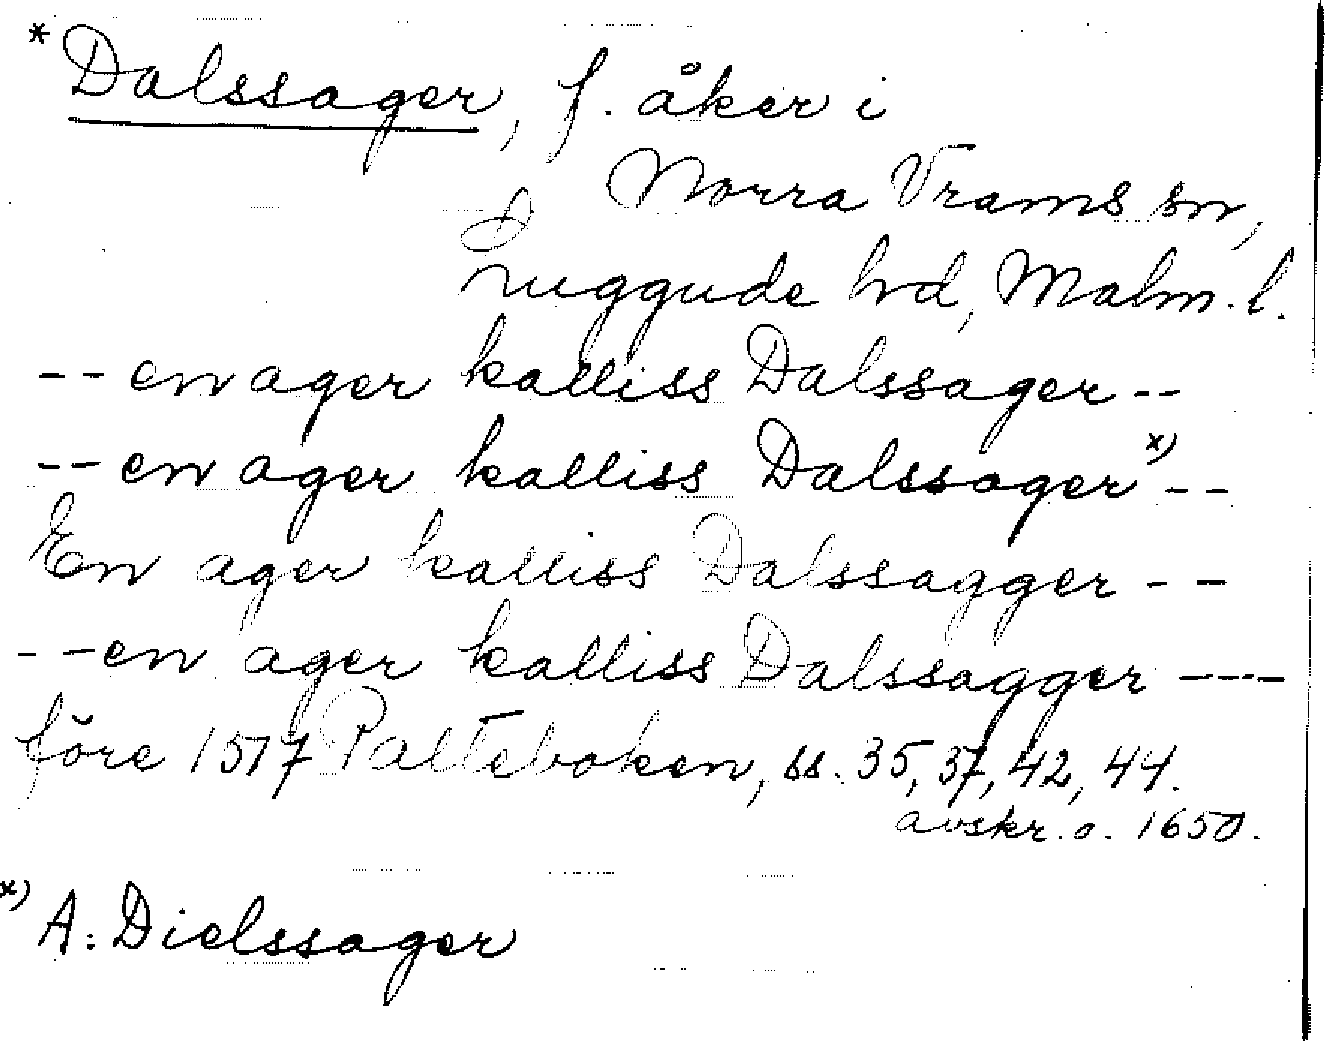 *Dalssager, f. åker i
Norra Vrams sn,
Luggude hd, Malm. l.
-- en ager kalliss Dalssager --
-- en ager kalliss Dalssager x) --
En ager kalliss Dalssagger --
-- en ager kalliss Dalssagger ---
före 1517 Palteboken, ss. 35, 37, 42, 44.
avskr. o. 1650.
x) A: Dielssager